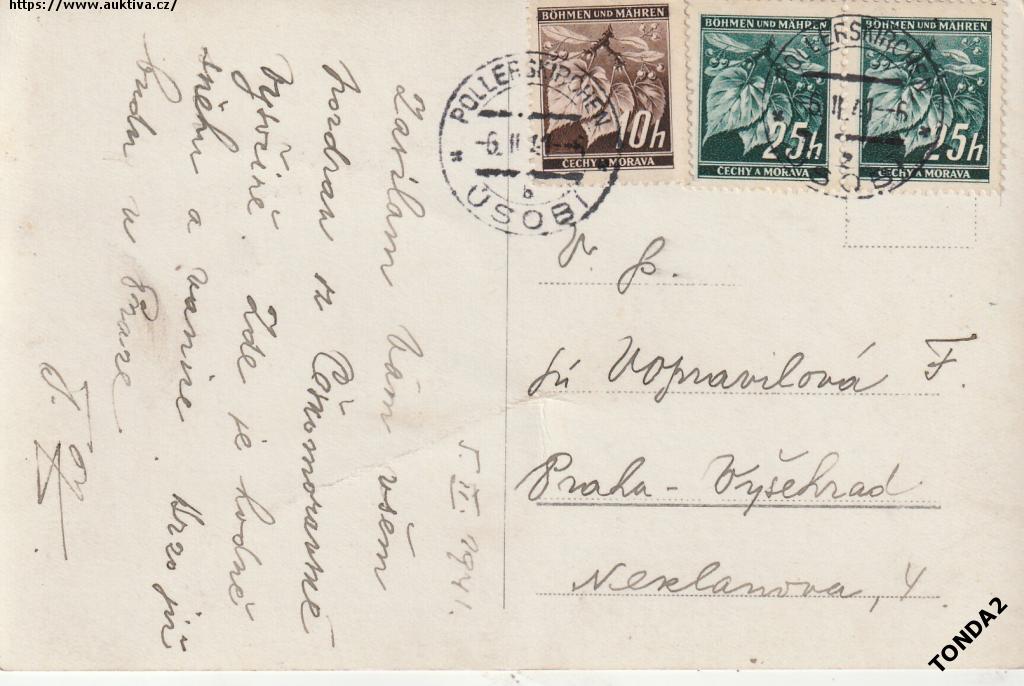 https://www.auktiva.cz/
BÖHMEN UND MÄHREN
10h
ČECHY A MORAVA
BÖHMEN UND MÄHREN
25h
ČECHY A MORAVA
BÖHMEN UND MÄHREN
25h
ČECHY A MORAVA
POLLERSKIRCHEN
-6.II.41-
b
ÚSOBÍ
POLLERSKIRCHEN
6.II.41-6
ÚSOBÍ
Zasílám Vám všem
pozdrav z Českomoravské
Vysočiny. Zde je hodně
sněhu a vánice. Brzo již
budu v Praze.
5.II.1941.
V. p.
pí Vopravilová F.
Praha - Vyšehrad
Neklanova, 4.
TONDA2